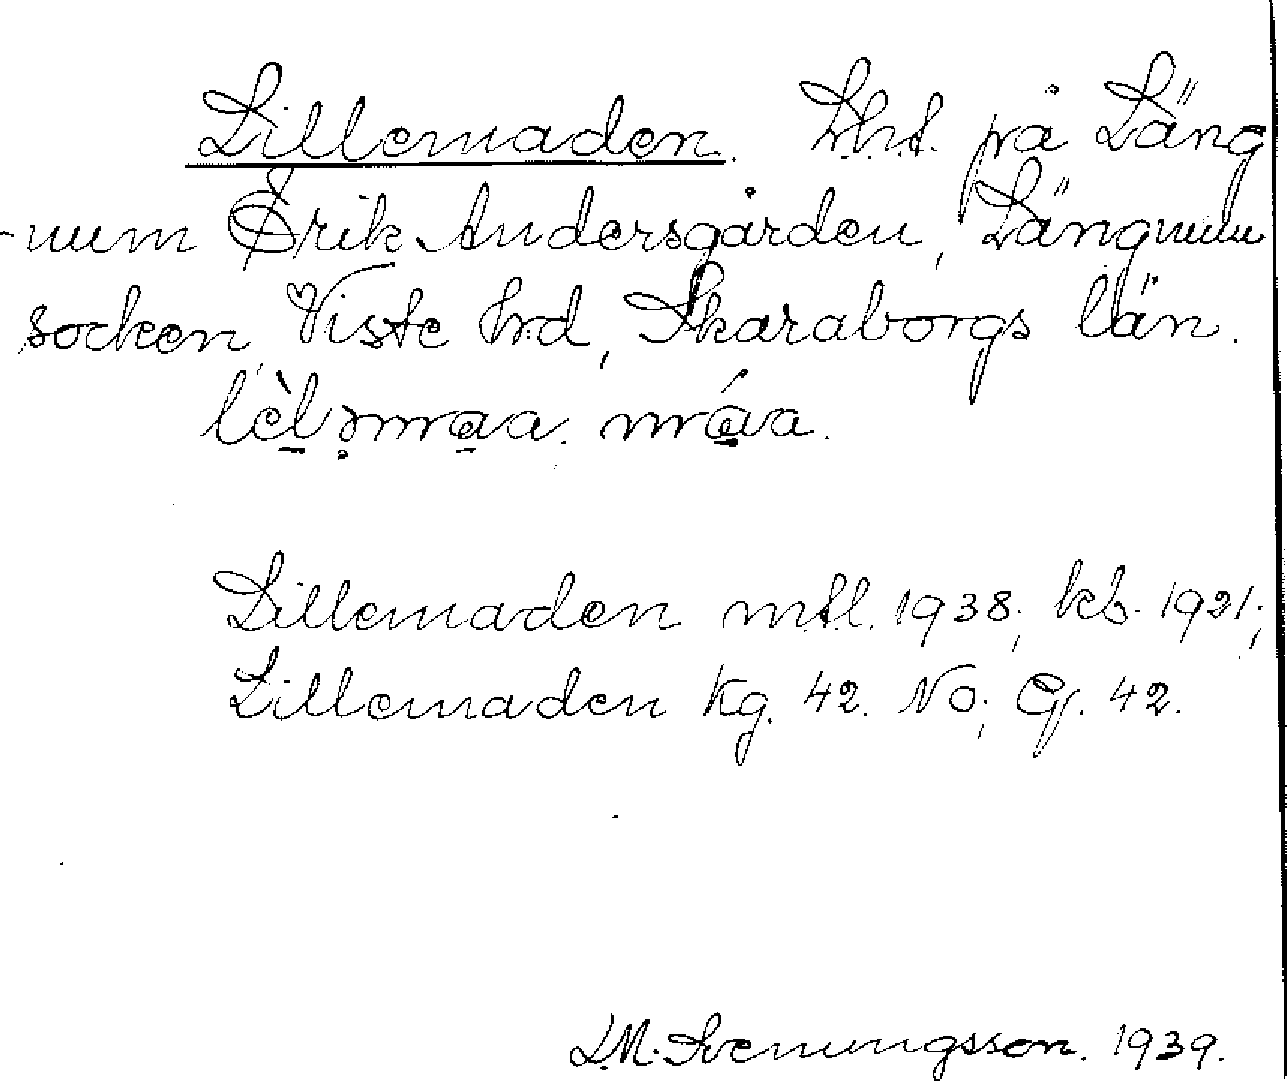 Lillemaden. Lht. på Läng
-num Erik Andersgården, Längnum
socken, Viste hrd, Skaraborgs län.
Lillemaden mtl. 1938; kb. 1921;
Lillemaden Kg. 42. NO; Gf. 42.
L.M. Svenungsson. 1939.